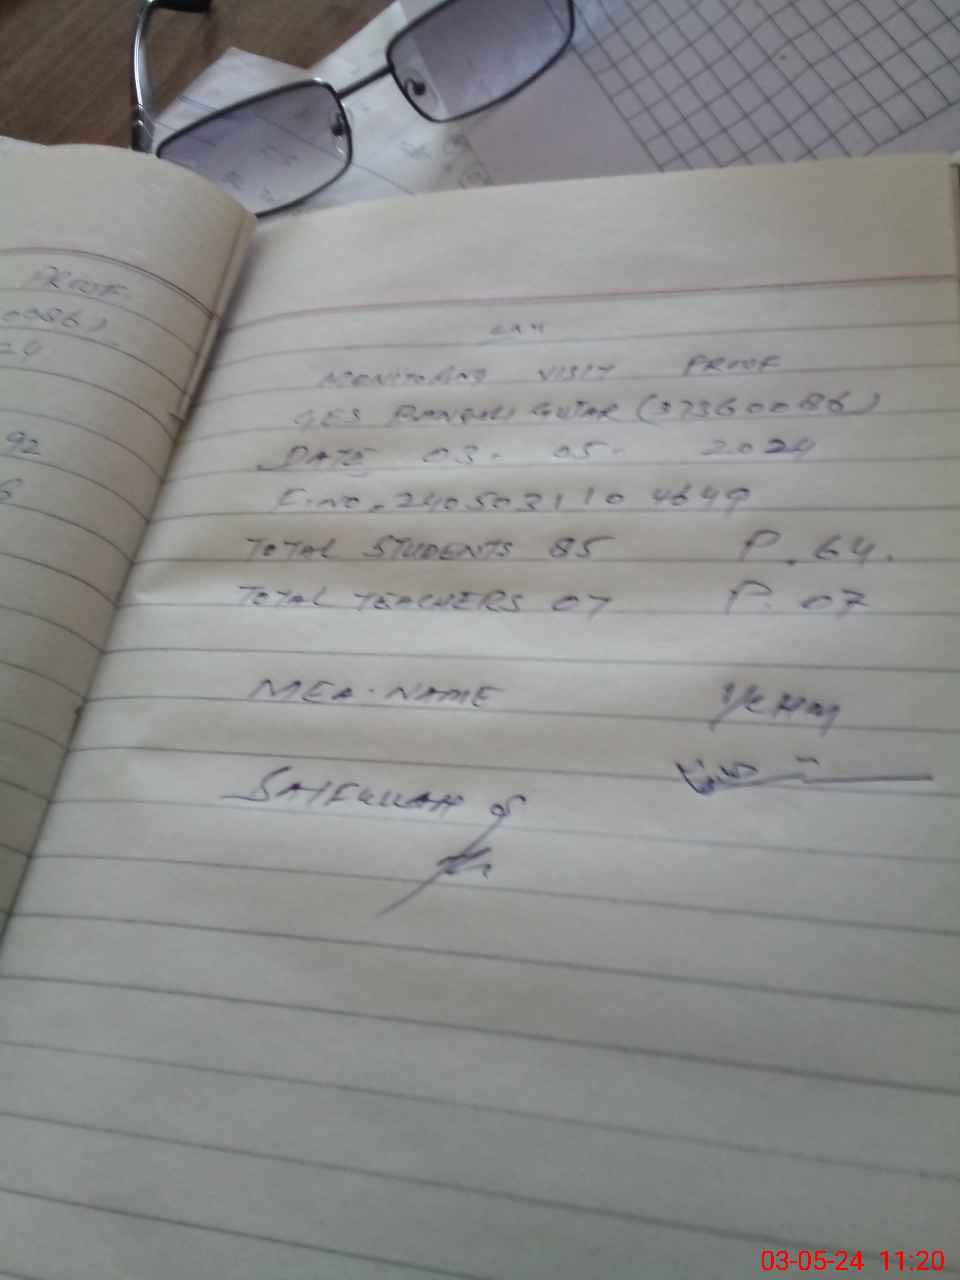 PROOF
0086)
24
92
6
MONITORING VISIT PROOF
GES GUJAR (37360086)
DATE 03- 05- 2024
F.NO. 240503110 4649
TOTAL STUDENTS 85 P. 64.
TOTAL TEACHERS 07 P. 07
MEA. NAME I/C HM
SAIFULLAH
03-05-24 11:20